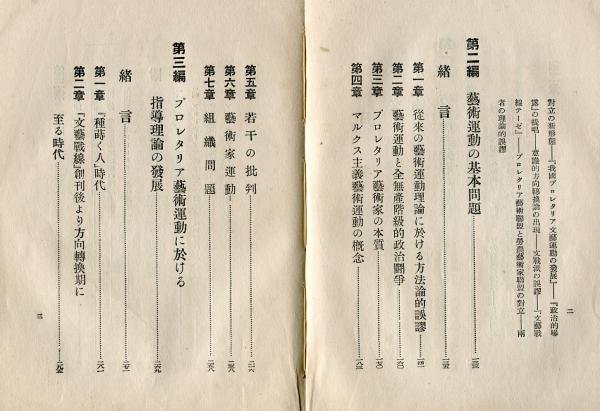 對立の新形態――『我國プロレタリア文藝運動の發展』――『政治的曝
露』の提唱――意識的方向轉換論の出現――文戰派の誤謬――『文藝戰
線テーゼ』――プロレタリア藝術聯盟と勞農藝術家聯盟の對立――兩
者の理論的誤謬
第二編 藝術運動の基本問題
緒言
第一章 從來の藝術運動理論に於ける方法論的誤謬
第二章 藝術運動と全無產階級的政治鬪爭
第三章 プロレタリア藝術家の本質
第四章 マルクス主義藝術運動の概念
二
第五章 若干の批判
第六章 藝術家運動
第七章 組織問題
第三編 プロレタリア藝術運動に於ける
指導理論の發展
緒言
第一章 『種蒔く人』時代
第二章 『文藝戰線』創刊後より方向轉換期に
至る時代
三